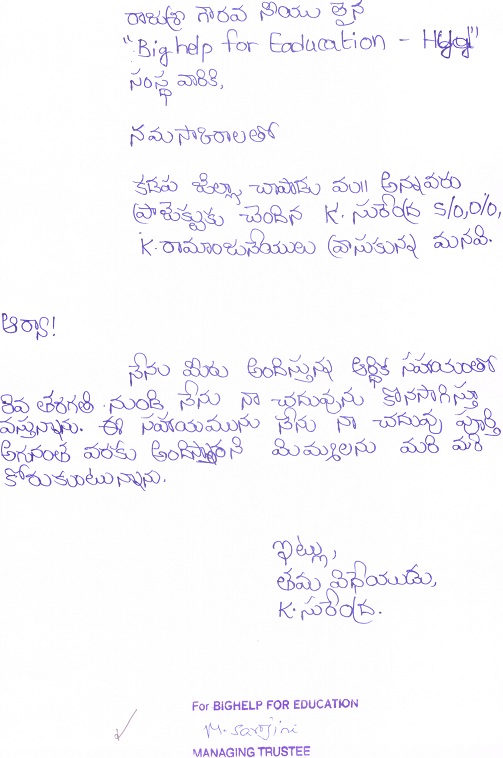 రాజశ్రీ గౌరవ నీయు లైన
"Big help for Eaducation - Hyd"
సంస్థ వారికి,
నమసాకిరాలతో
కడప జిల్లా చాపాడు మం॥ అన్నవరు
ప్రాజెక్టుకు చెందిన K. సురేంద్ర S/O,D/O,
K. రామాంజనేయులు వ్రాసుకున్న మనవి.
ఆర్యా!
నేను మీరు అందిస్తున్న ఆర్థిక సహాయంతో
6వ తరగతి నుండి నేను నా చదువును కొనసాగిస్తూ
వస్తున్నాను. ఈ సహాయమును నేను నా చదువు పూర్తి
అగునంత వరకు మిమ్మలను మరి మరి
కోరుకుంటున్నాను.
ఇట్లు,
తమ విధేయుడు,
K. సురేంద్ర.
For BIGHELP FOR EDUCATION
M. Sarojini
MANAGING TRUSTEE